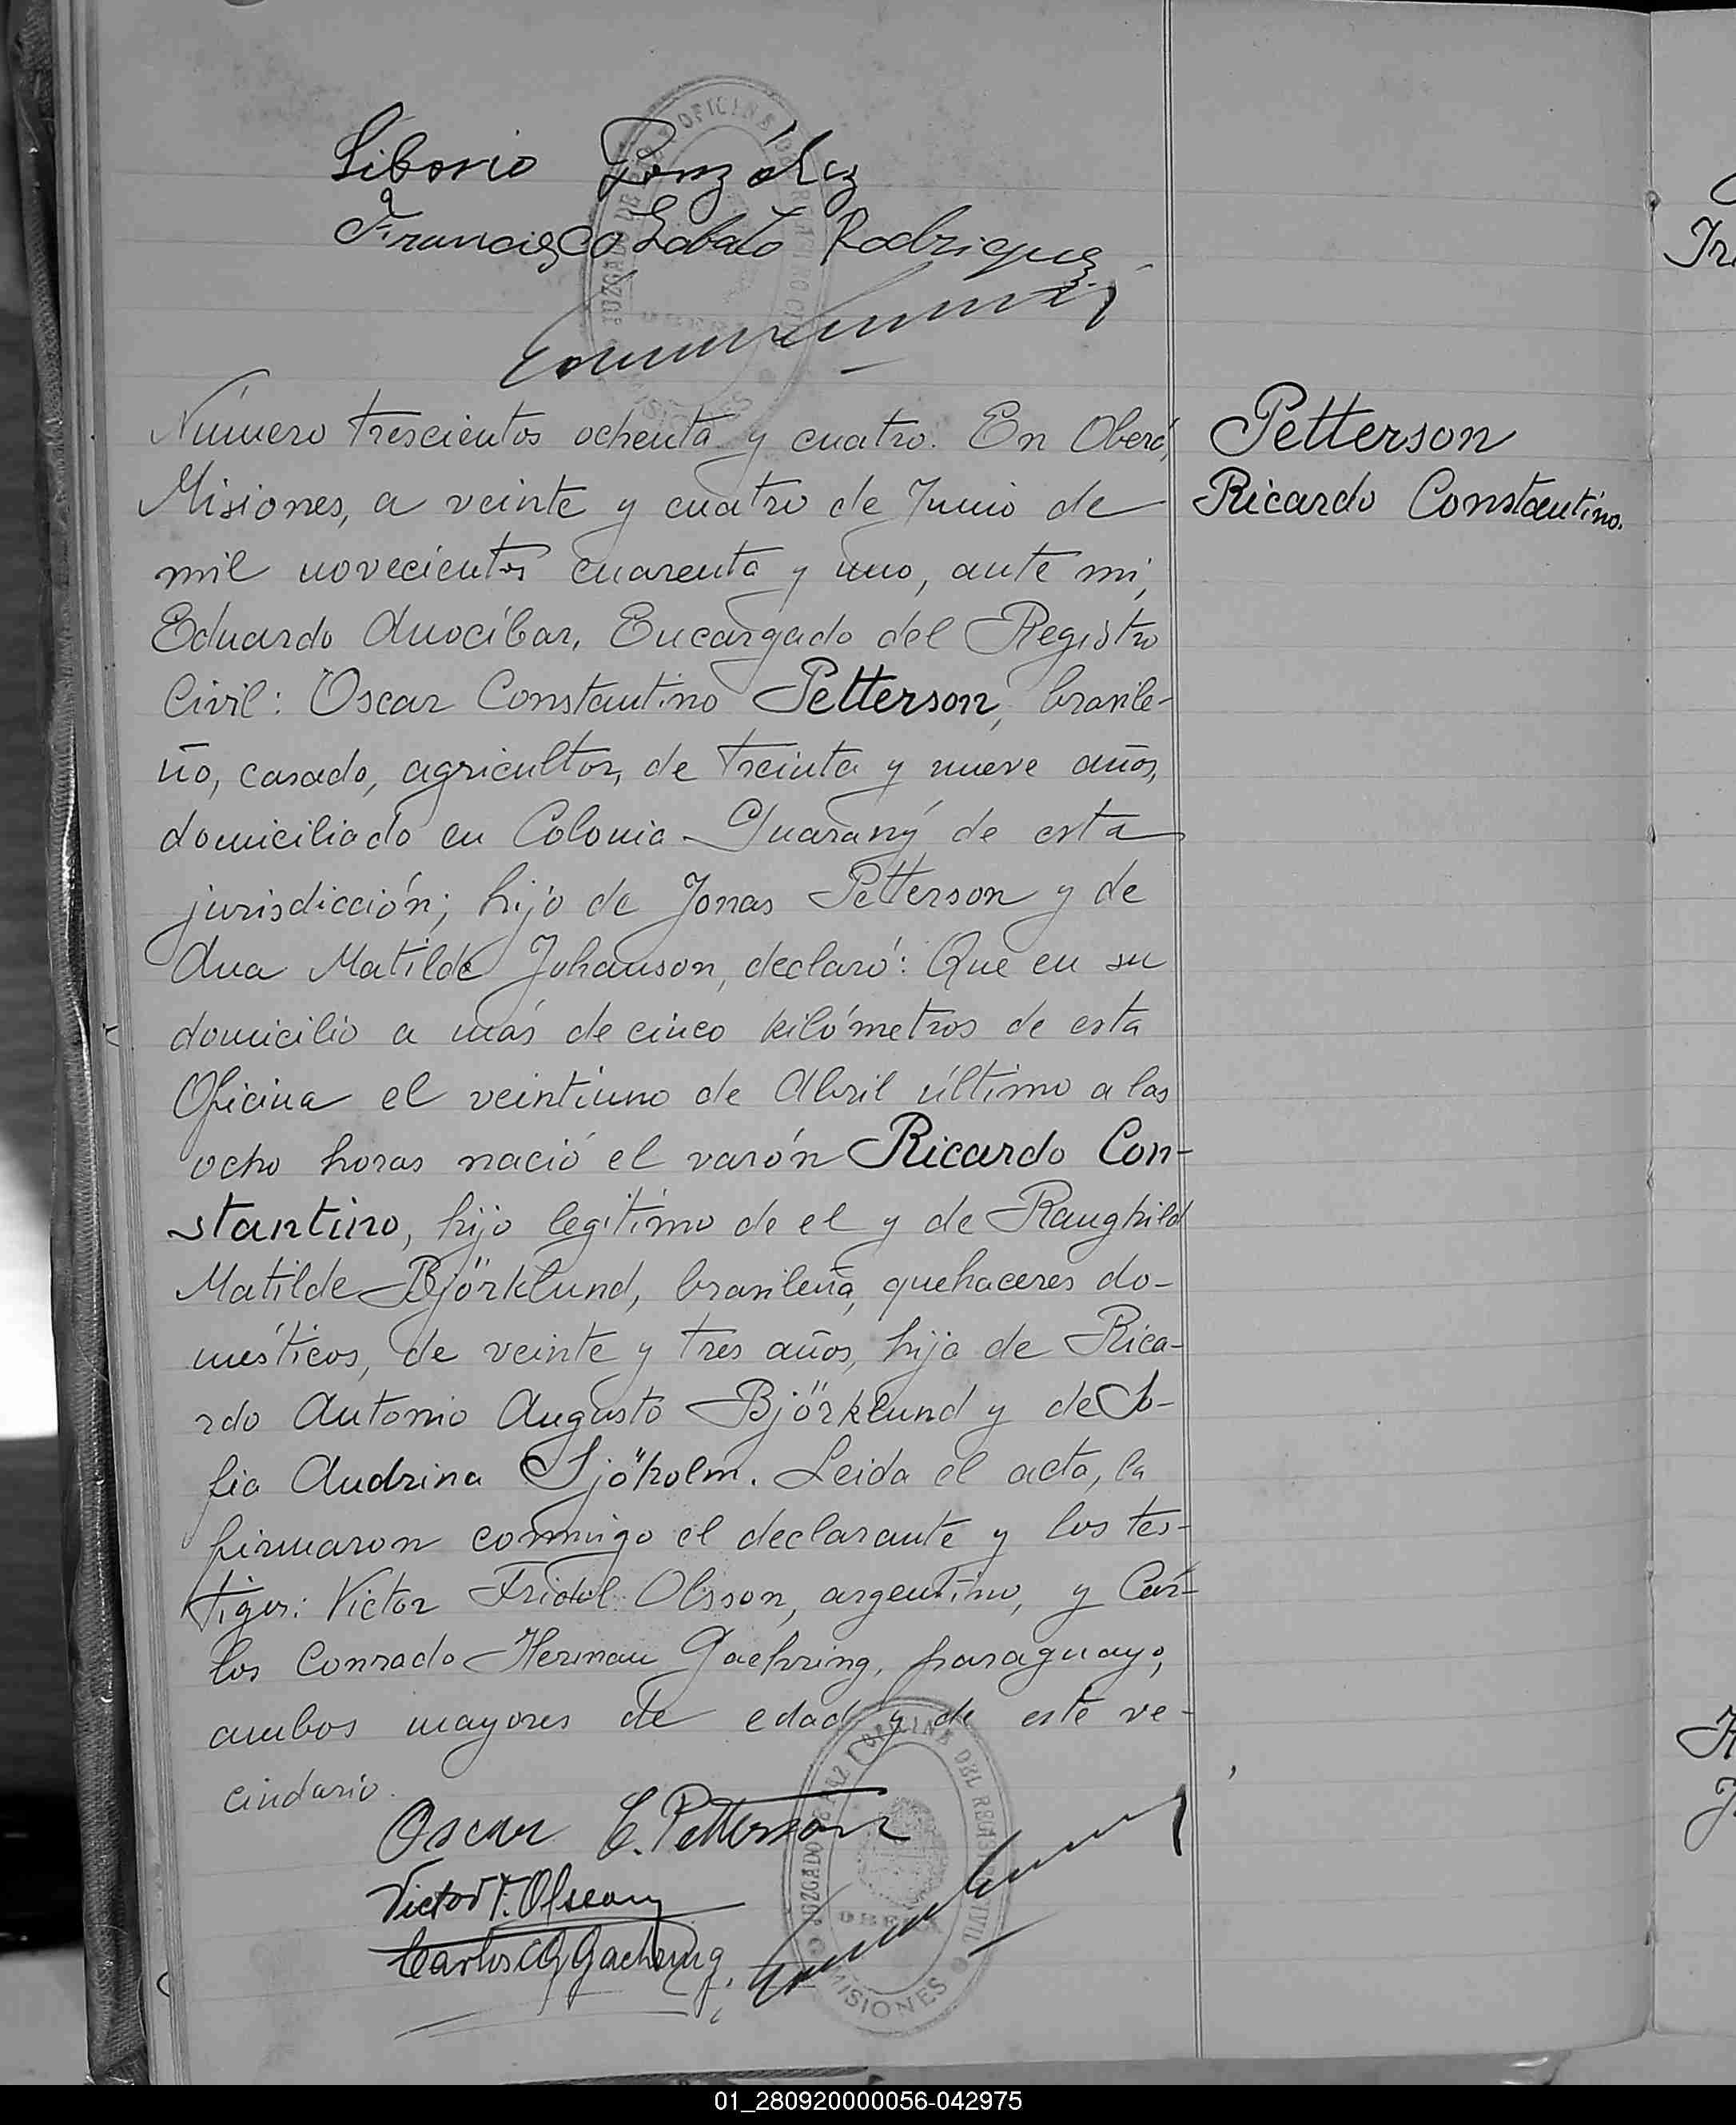 Liborio González
Francisco Lobato Rodriguez
Número trescientos ochenta y cuatro. En Oberá,
Misiones, a veinte y cuatro de Junio de
mil novecientos cuarenta y uno, ante mi,
Eduardo Anocíbar, Encargado del Registro
Civil: Oscar Constantino Petterson, brasile-
ño, casado, agricultor, de treinta y nueve años,
domiciliado en Colonia Guarany de esta
jurisdicción; hijo de Jonas Petterson y de
Ana Matilde Johanson, declaró: Que en su
domicilio a más de cinco kilómetros de esta
Oficina el veintiuno de Abril último a las
ocho horas nació el varón Ricardo Con-
stantino, hijo legítimo de el y de Raughild
Matilde Björklund, brasileña, quehaceres do-
mésticos, de veinte y tres años, hija de Rica-
rdo Antonio Augusto Björklund y de So-
fia Audrina Sjöholm. Leida el acta, la
firmaron conmigo el declarante y los tes-
tigos: Victor Fridol Olsson, argentino, y Car-
los Conrado Herman Gaehring, paraguayo,
ambos mayores de edad y de este ve-
cindario.
Oscar C. Petterson
Victor F. Olsson
Carlos Gaehring.
JUZGADO DE PAZ Y OFICINA DEL REGISTRO CIVIL
OBERA
MISIONES
Petterson
Ricardo Constantino.
01_280920000056-042975